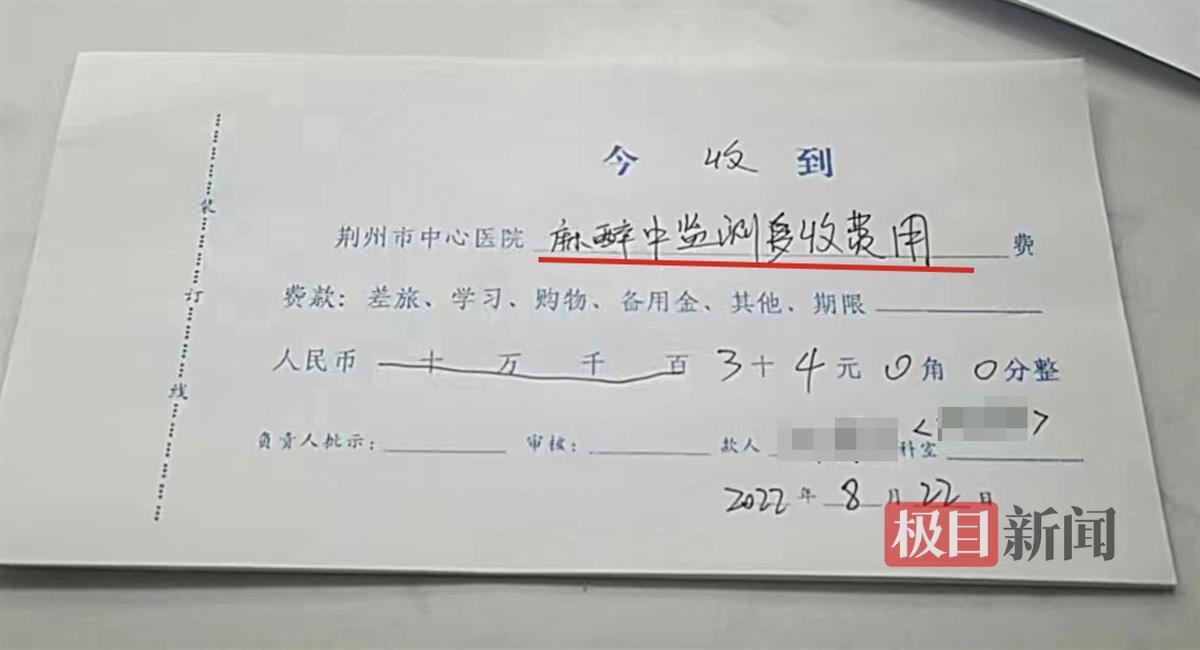 今收到
荆州市中心医院 麻醉中监测多收费用 费
费款：差旅、学习、购物、备用金、其他、期限
人民币 十 万 千 百 3十4元0角0分整
负责人批示： 审核： 款人 < > 科室
2022年8月22日
装订线
极目新闻